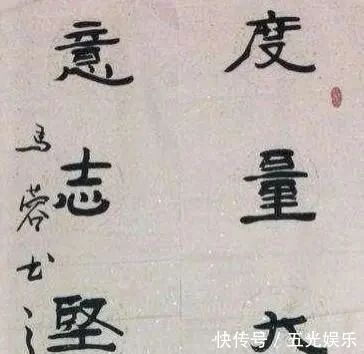 度量大
意志坚
马蓉书
快传号/五光娱乐